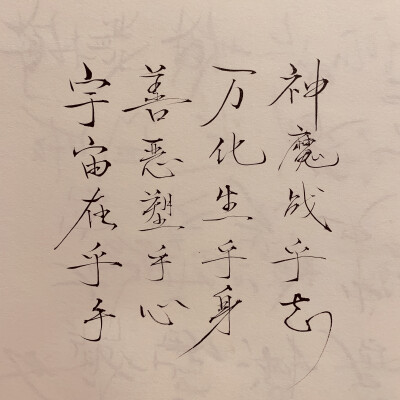 神魔战乎志
万化生乎身
善恶塑乎心
宇宙在乎手